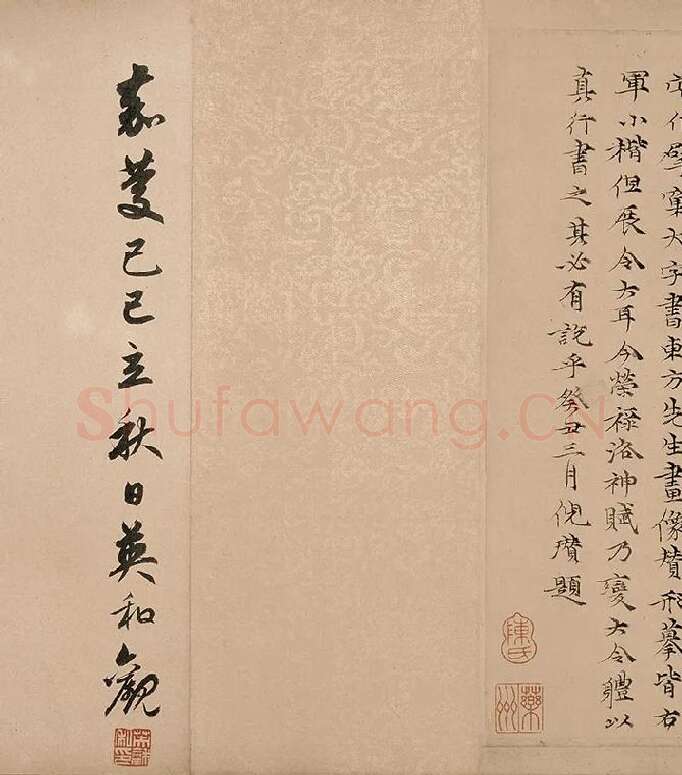 行擘窠大字書東方先生畫像賛形摹皆右
軍小楷但展令大耳今榮祿洛神賦乃變大令軆以
真行書之其必有說乎癸丑三月倪瓚題
陳氏
嘉慶己巳立秋日英和觀
Shufawang.CN